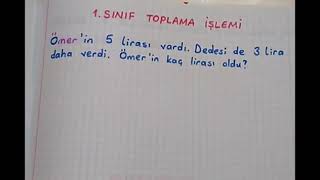 1. SINIF TOPLAMA İŞLEMİ
Ömer'in 5 lirası vardı. Dedesi de 3 lira
daha verdi. Ömer'in kaç lirası oldu?